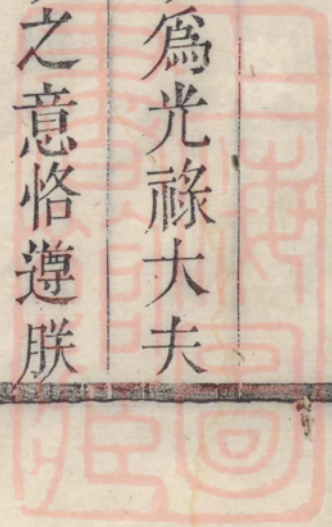 爲光祿大夫
之意恪遵朕